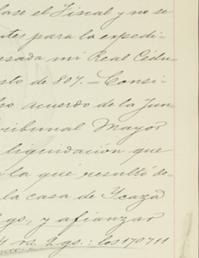 lase el Fiscal y no se
ntes para la expedi-
esada mi Real Cédu
sto de 807.— Consi-
acuerdo de la Jun
ribunal Mayor
liquidacion que
la que resultó de-
la casa de Icaza
gs, y afianzar
rs. 2 gs: los 170711